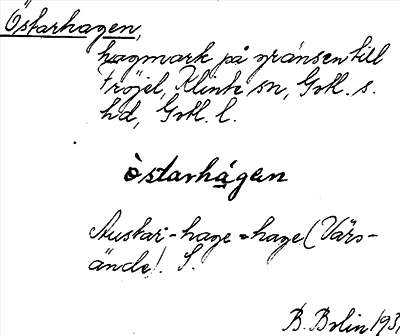 Östarhagen,
hagmark på gränsen till
Fröjel, Klinte sn, Gotl. s.
hd, Gotl. l.
òstarhágen
Austar-hage = hage (Värs-
ände). S.
B. Bolin 193